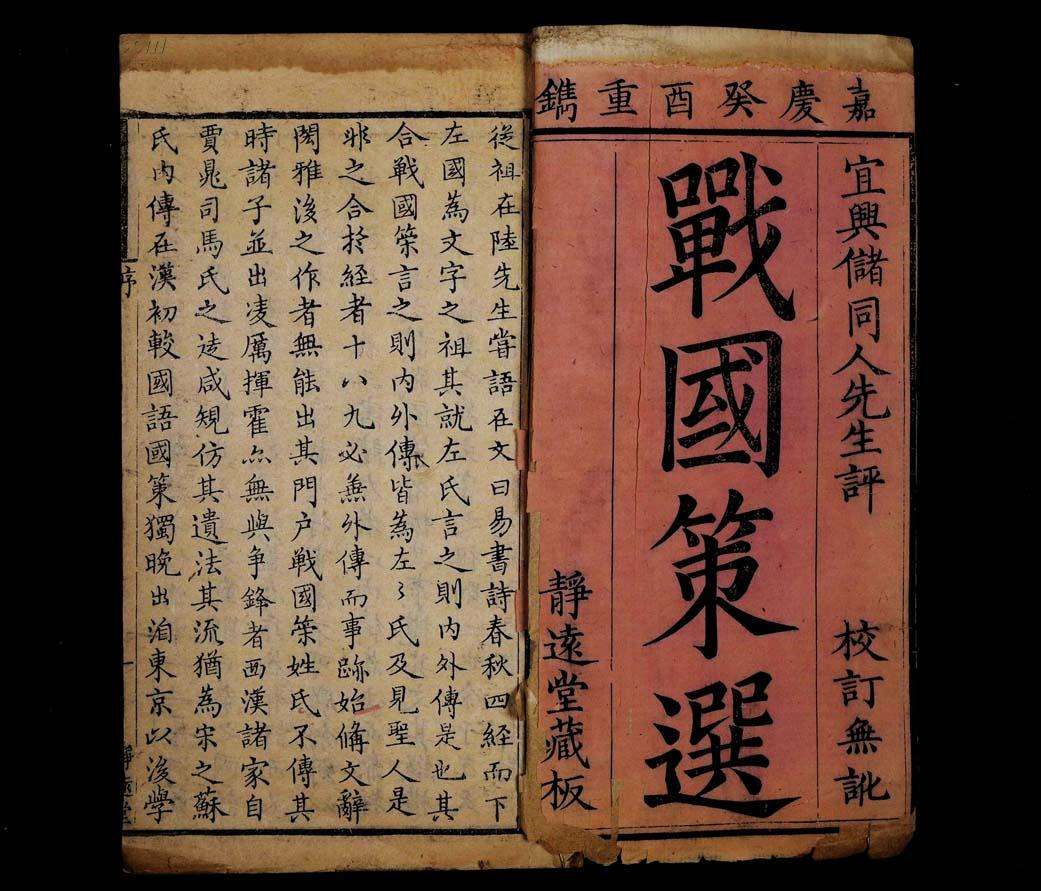 嘉慶癸酉重鐫
宜興儲同人先生評 校訂無訛
戰國策選
靜遠堂藏板
從祖在陸先生嘗語在文曰易書詩春秋四經而下
左國為文字之祖其就左氏言之則內外傳是也其
合戰國策言之則內外傳皆為左〻氏及見聖人是
非之合於經者十八九必兼外傳而事跡始備文辭
閎雅後之作者無能出其門戶戰國策姓氏不傳其
時諸子並出凌厲揮霍亦無與爭鋒者西漢諸家自
賈鼂司馬氏之徒咸規仿其遺法其流猶為宋之蘇
氏內傳在漢初較國語國策獨晚出洎東京以後學
序 一